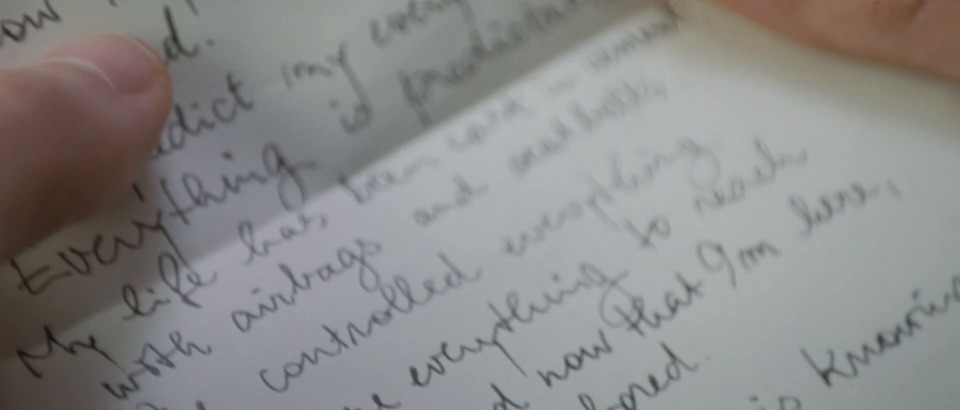 d.
dict my every
Everything is predictable
My life has been
with airbags and seatbelts.
controlled everything
everything to reach
d now that I'm here,
bored.
is knowing